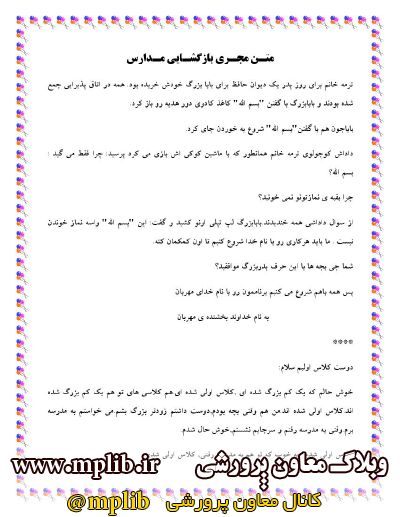 متن مجری بازگشایی مدارس
ترمه خانم برای روز پدر یک دیوان حافظ برای بابا بزرگ خودش خریده بود. همه در اتاق پذیرایی جمع
شده بودند و بابابزرگ با گفتن "بسم الله" کاغذ کادوی دور هدیه رو باز کرد.
باباجون هم با گفتن"بسم الله" شروع به خوردن چای کرد.
داداش کوچولوی ترمه خانم همانطور که با ماشین کوکی اش بازی می کرد پرسید: چرا فقط می گید :
بسم الله؟
چرا بقیه ی نمازتونو نمی خونید؟
از سوال داداشی همه خندیدند.بابابزرگ لپ تپلی اونو کشید و گفت: این "بسم الله" واسه نماز خوندن
نیست . ما باید هرکاری رو با نام خدا شروع کنیم تا اون کمکمان کنه.
شما چی بچه ها با این حرف پدربزرگ موافقید؟
پس همه باهم شروع می کنیم برناممون رو با نام خدای مهربان
به نام خداوند بخشنده ی مهربان
****
دوست کلاس اولیم سلام:
خوش حالم که یک کم بزرگ شده ای ،کلاس اولی شده ای.هم کلاسی های تو هم یک کم بزرگ شده
اند.کلاس اولی شده اند.من هم وقتی بچه بودم،دوست داشتم زودتر بزرگ بشم.می خواستم به مدرسه
برم.وقتی به مدرسه رفتم و سرجایم نشستم،خوش حال شدم.
وبلاگ معاون پرورشی www.mplib.ir
کانال معاون پرورشی @mplib